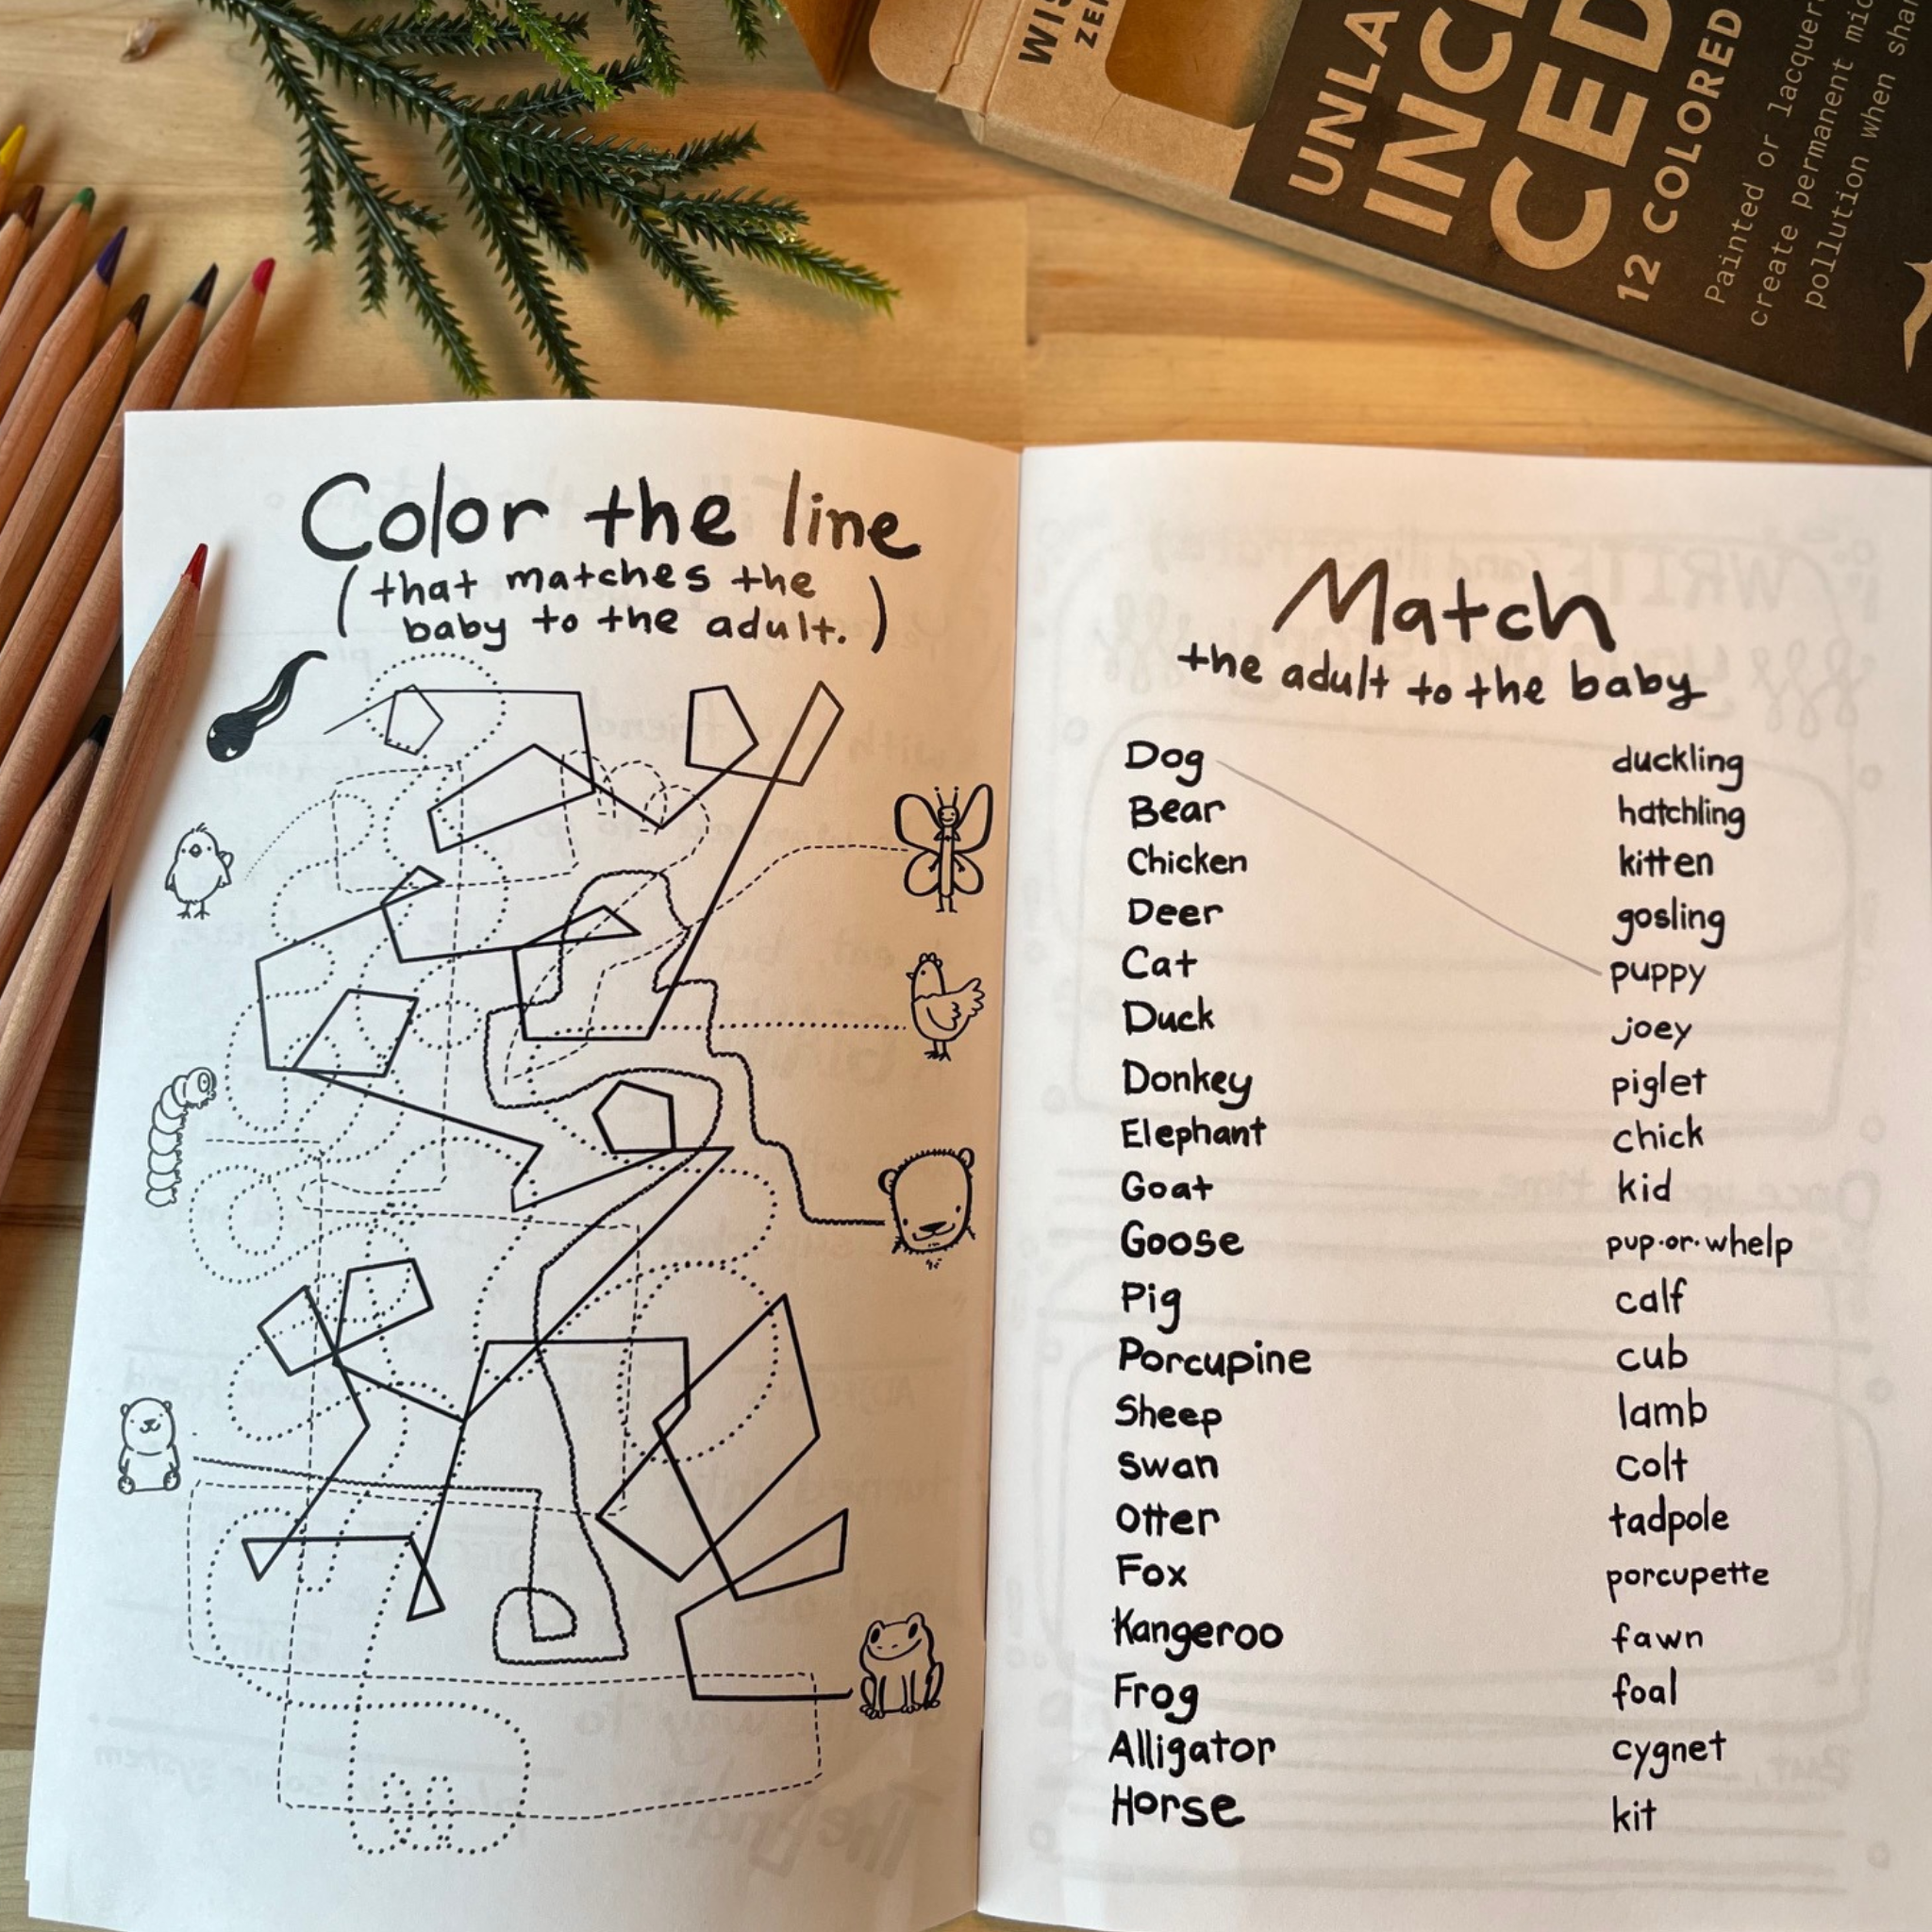 UNLA
INCE
CED
12 COLORED
Painted or lacquer
create permanent mic
pollution when shar
Color the line
(that matches the
baby to the adult.)
Match
the adult to the baby
Dog
Bear
Chicken
Deer
Cat
Duck
Donkey
Elephant
Goat
Goose
Pig
Porcupine
Sheep
Swan
Otter
Fox
Kangeroo
Frog
Alligator
Horse
duckling
hatchling
kitten
gosling
puppy
joey
piglet
chick
kid
pup·or·whelp
calf
cub
lamb
colt
tadpole
porcupette
fawn
foal
cygnet
kit